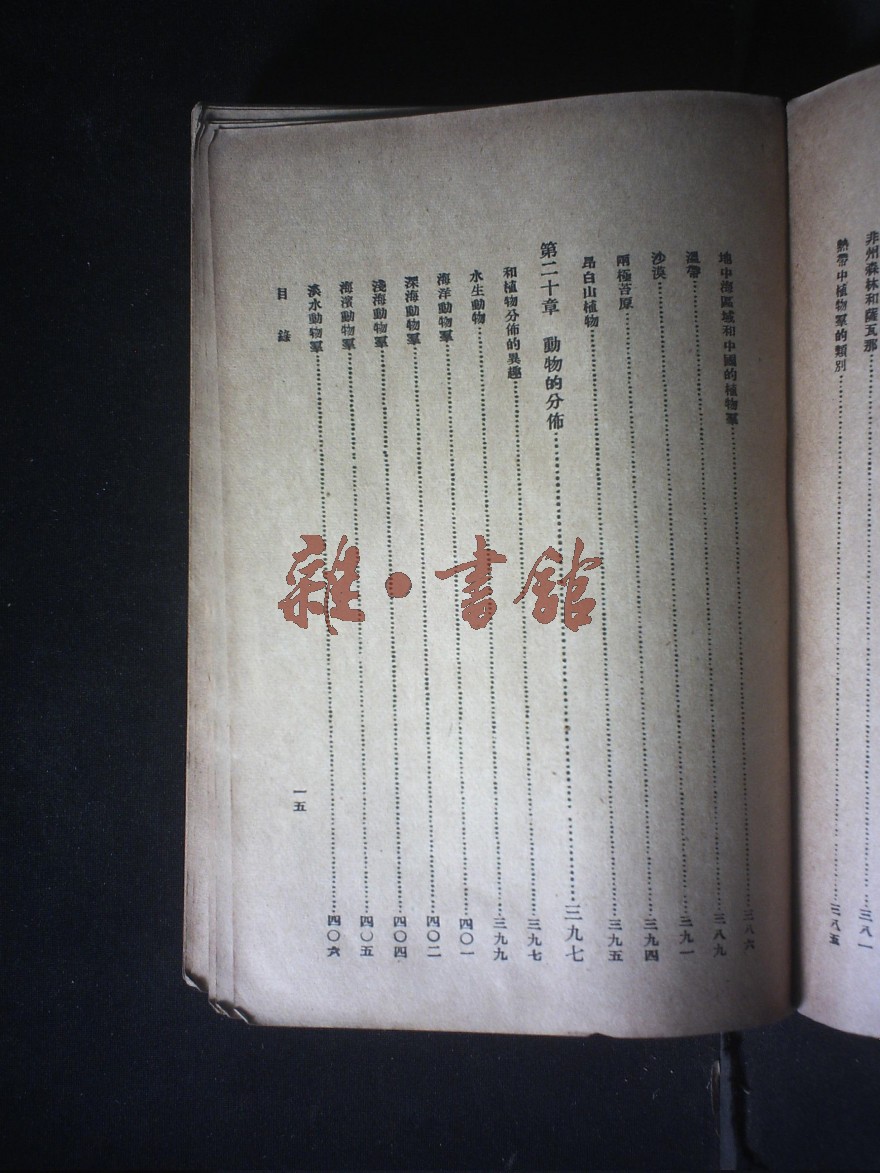 非州森林和薩瓦那三八一
熱帶中植物羣的類別三八五
地中海區域和中國的植物羣三八六
溫帶三八九
沙漠三九一
兩極苔原三九四
昂白山植物三九五
第二十章 動物的分佈三九七
和植物分佈的異趣三九七
水生動物三九九
海洋動物羣四〇一
深海動物羣四〇二
淺海動物羣四〇四
海濱動物羣四〇五
淡水動物羣四〇六
目錄
一五
雜·書館